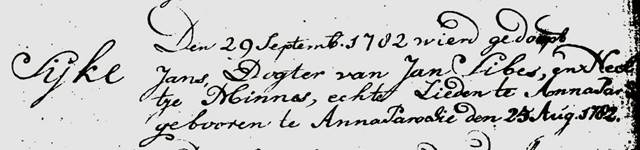 Den 29 Septemb. 1782 wierd gedoopt
Sijke
Jans, Dogter van Jan Sibes, en Neel
tje Minnes, echte Lieden te AnnaPar
gebooren te AnnaParochie den 25 Aug. 1782.